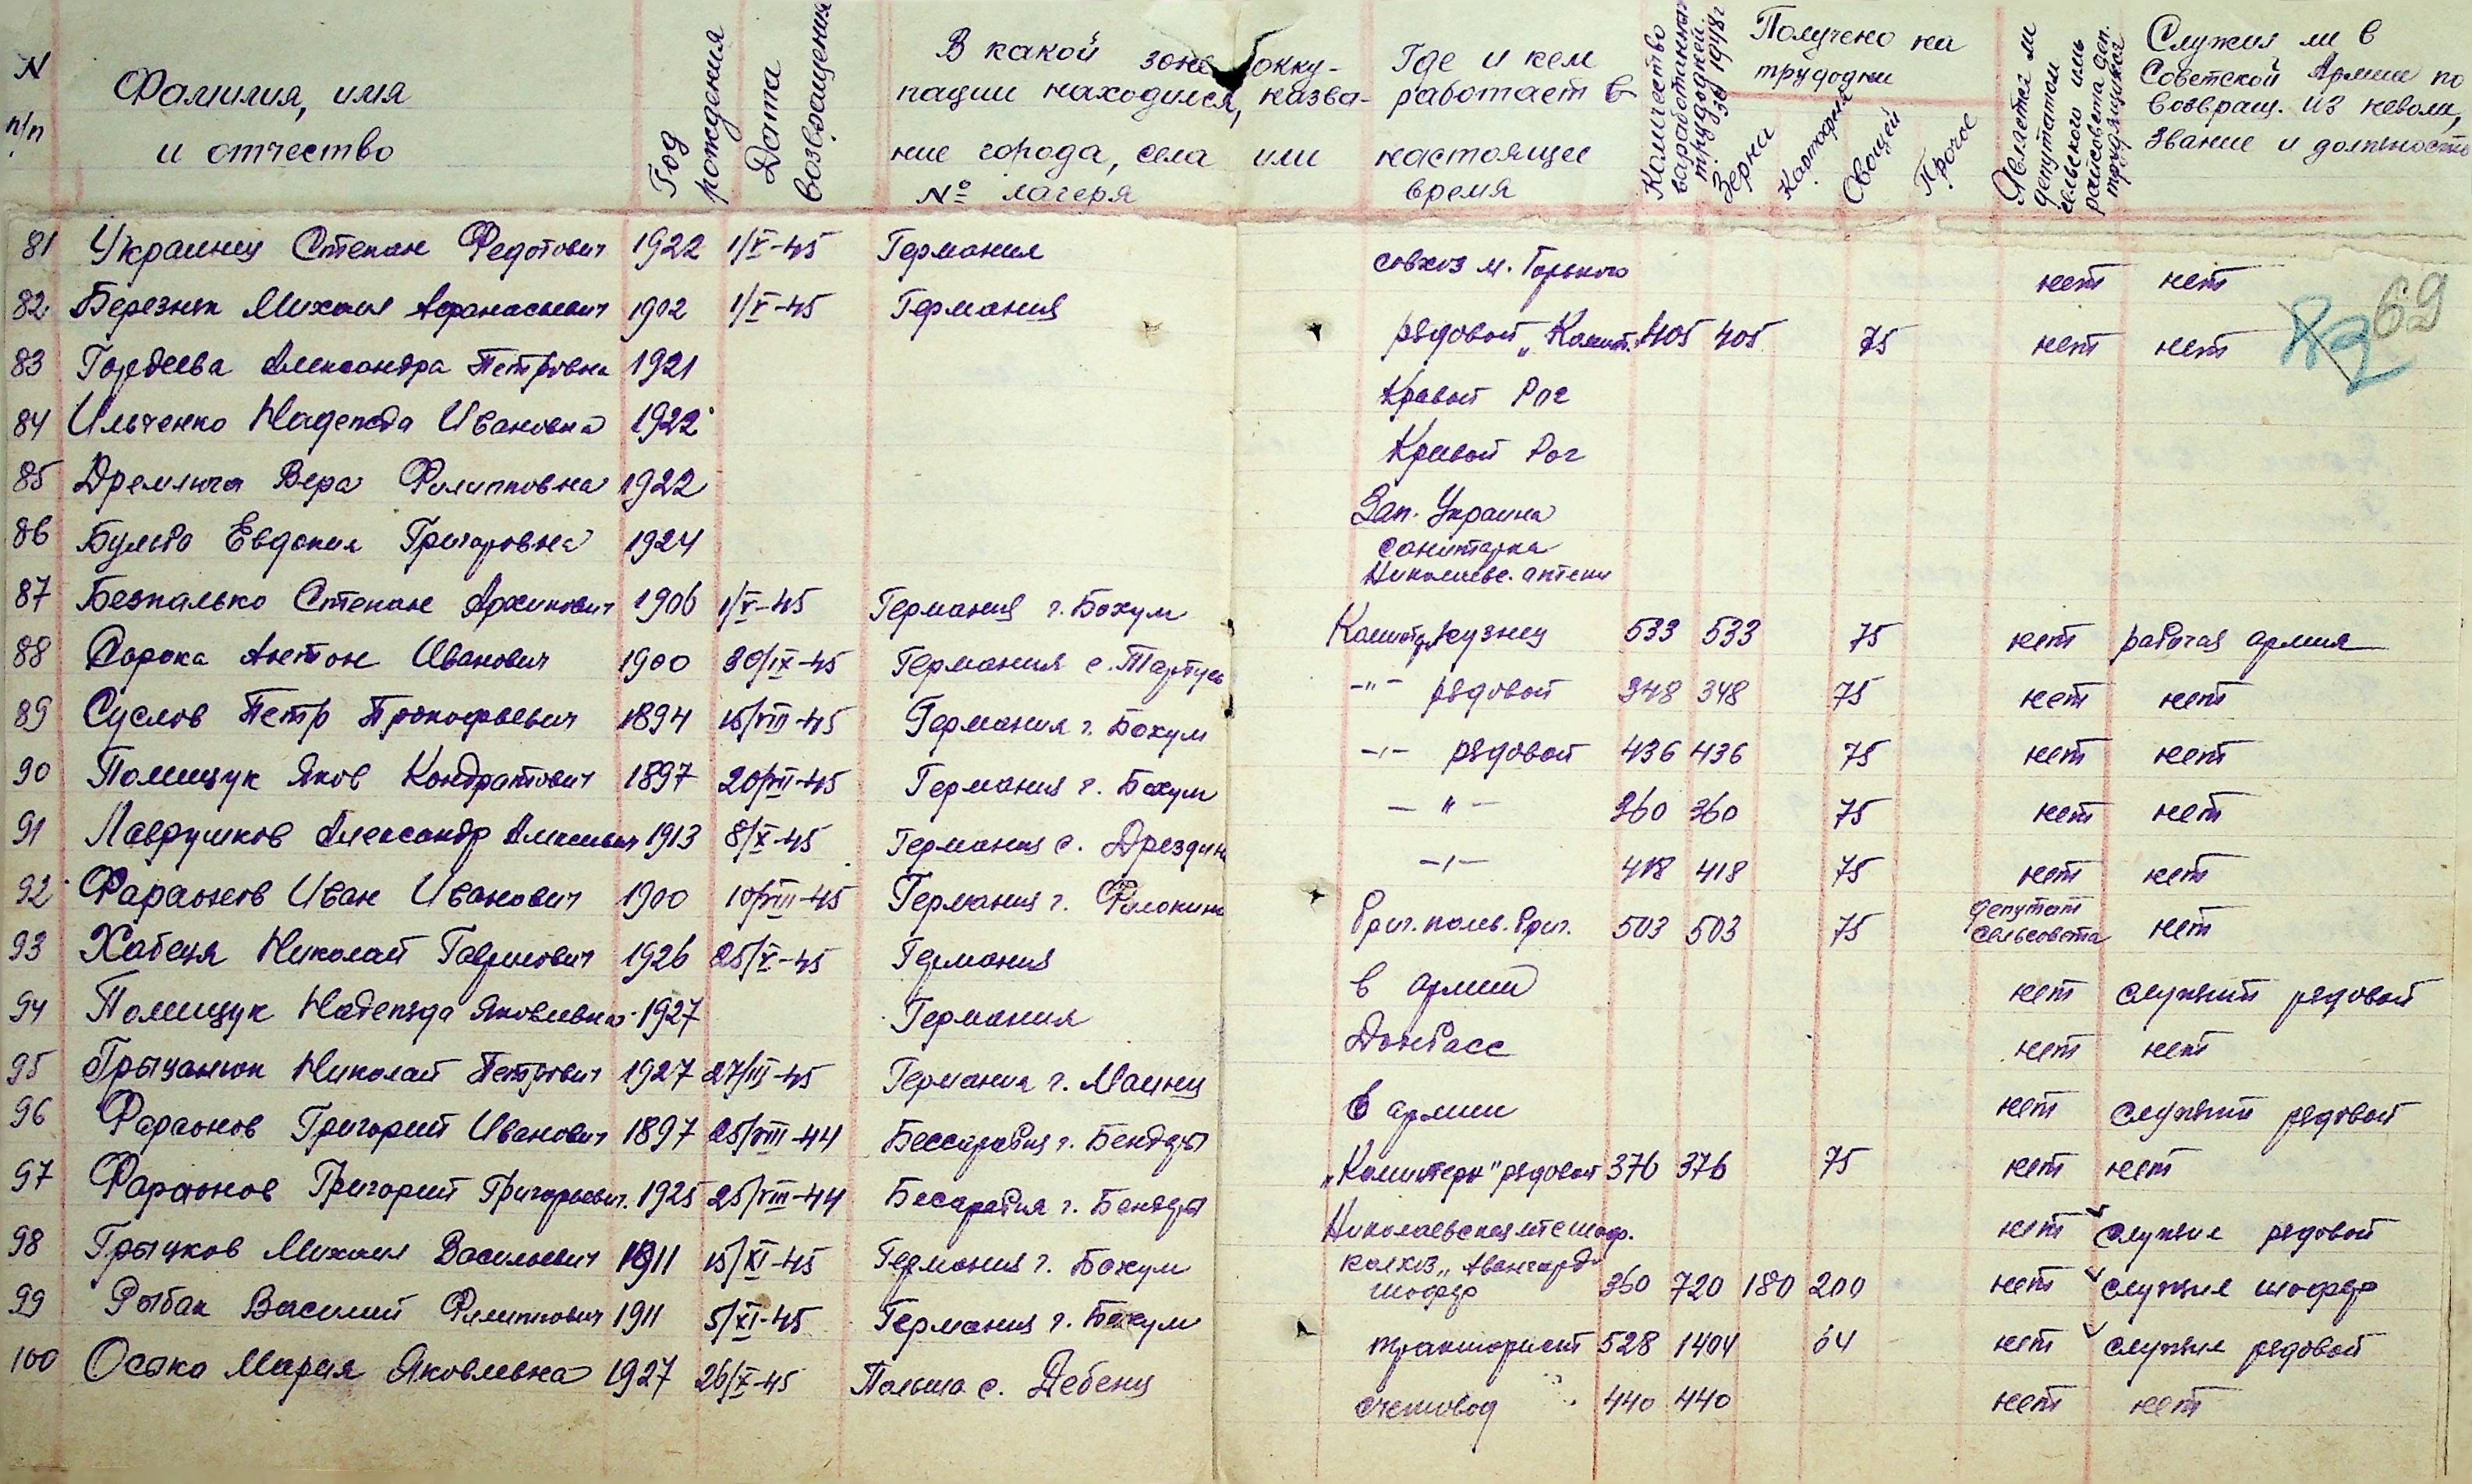 N п/п
Фамилия, имя и отчество
Год рождения
Дата возвращения
В какой зоне оккупации находился, название города, села или № лагеря
Где и кем работает в настоящее время
Количество выработанных трудодней за 1948 г
Получено на трудодни
Зерна
Картофеля
Овощей
Прочее
Является ли депутатом сельского иль райсовета деп. трудящихся
Служил ли в Советской Армии по возвращ. из неволи, звание и должность
69
81 Украинец Степан Федотович 1922 1/V-45 Германия совхоз м. Горького нет нет
82 Березнюк Михаил Афанасьевич 1902 1/V-45 Германия рядовой „Комит. 405 405 75 нет нет
83 Гордеева Александра Петровна 1921 Кривой Рог
84 Ильченко Надежда Ивановна 1922 Кривой Рог
85 Дремлюга Вера Филипповна 1922 Зап. Украина
86 Бульба Евдокия Григоровна 1924 санитарка Николаевс. аптеки
87 Безпалько Степан Архипович 1906 1/V-45 Германия г. Бохум кузнец 533 533 75 нет рабочая армия
88 Сорока Антон Иванович 1900 30/IX-45 Германия с. -"- рядовой 348 348 75 нет нет
89 Суслов Петр Прокофьевич 1894 15/VIII-45 Германия г. Бохум -"- рядовой 436 436 75 нет нет
90 Полищук Яков Кондратович 1897 20/VII-45 Германия г. Бохум -"- 360 360 75 нет нет
91 Лаврушков Александр Алексеевич 1913 8/X-45 Германия с. Дрездин -"- 418 418 75 нет нет
92 Фараонов Иван Иванович 1900 10/VIII-45 Германия г. Бриг. полев. бриг. 503 503 75 депутат сельсовета нет
93 Хабеця Николай Гаврилович 1926 25/X-45 Германия в армии нет служит рядовой
94 Полищук Надежда Яковлевна 1927 Германия Донбасс нет нет
95 Грыцанюк Николай Петрович 1927 27/III-45 Германия г. Маинц в армии нет служит рядовой
96 Фараонов Григорий Иванович 1897 25/VIII-44 Бессарабия г. Бендеры „Коминтерн" рядовой 376 376 75 нет нет
97 Фараонов Григорий Григорьевич. 1925 25/VIII-44 Бесарабия г. Бендеры Николаевская мтс шоф. нет служил рядовой
98 Грыцков Михаил Васильевич 1911 15/XI-45 Германия г. Бохум колхоз „Авангард" шофер 360 720 180 200 нет служил шофер
99 Рыбак Василий Филиппович 1911 5/XI-45 Германия г. Бохум тракторист 528 1404 64 нет служил рядовой
100 Осяка Мария Яковлевна 1927 26/X-45 Польша с. Дебенц счетовод 440 440 нет нет